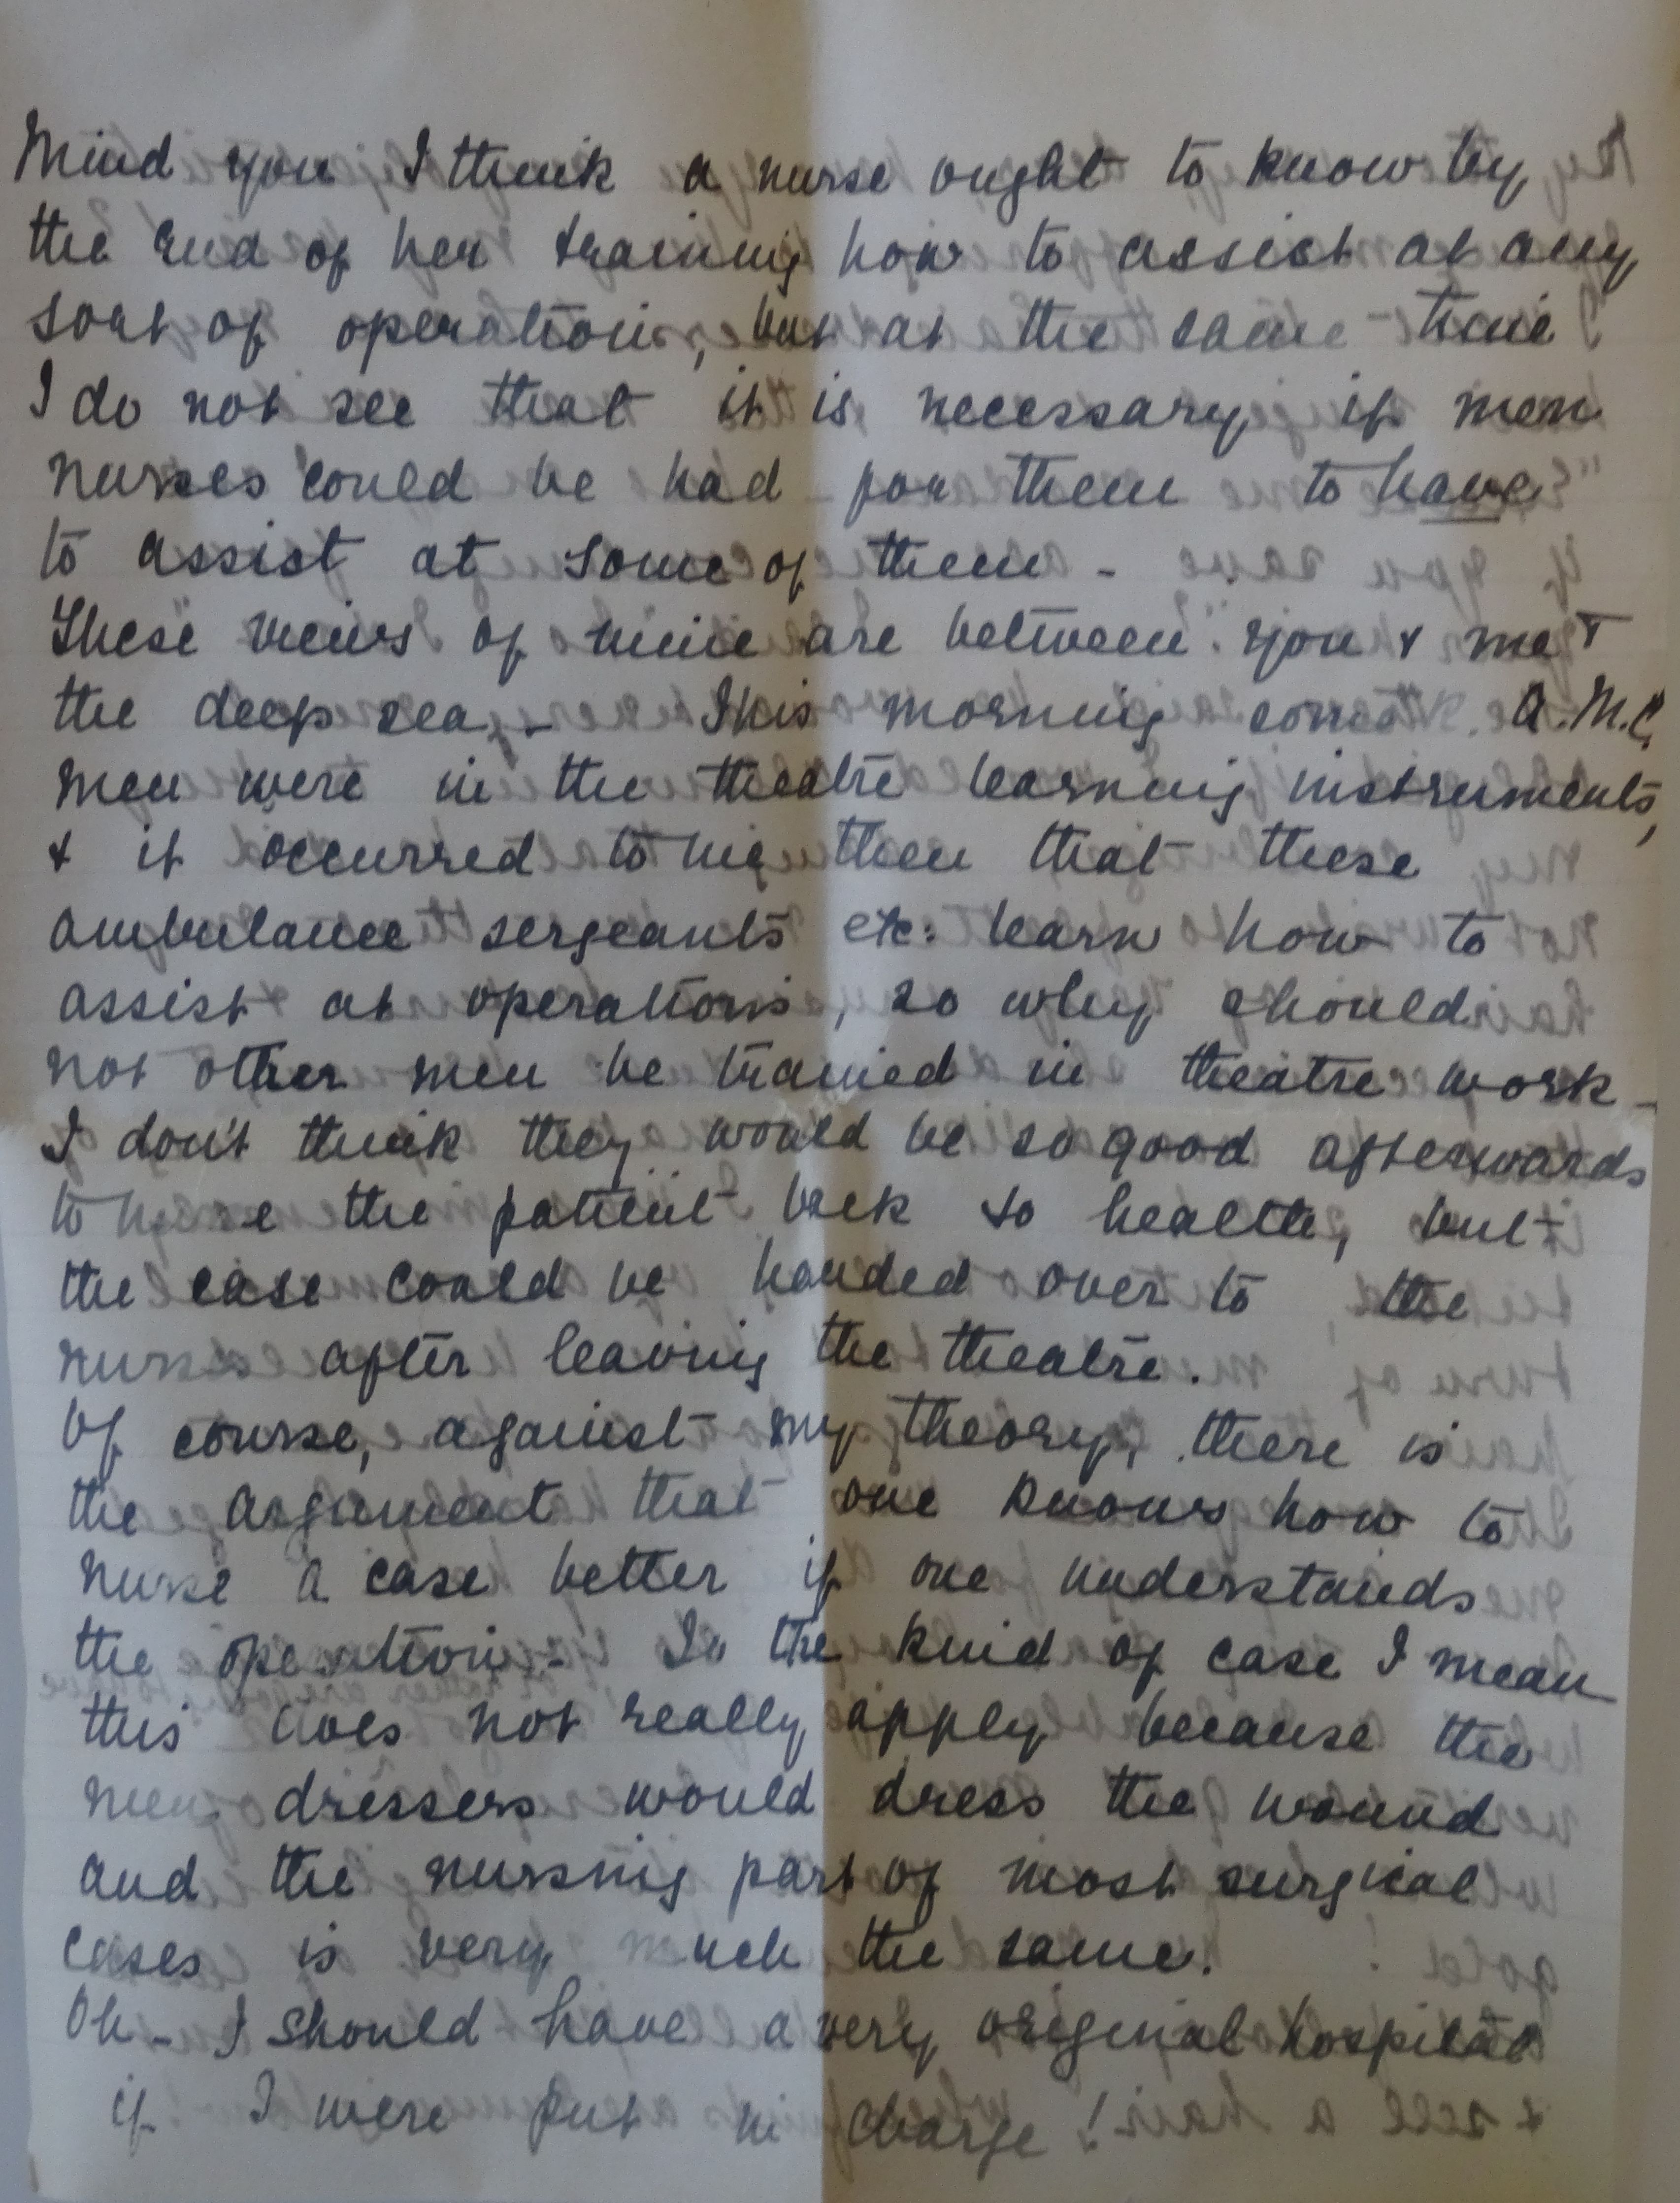 Mind you I think a nurse ought to know by
the end of her training how to assist at any
sort of operation, but at the same time
I do not see that it is necessary if men
nurses could be had for them to have
to assist at some of them -
These views of mine are between you & me &
the deep sea. - This morning some A.M.C.
men were in the theatre learning instruments,
& it occurred to me then that these
ambulance sergeants etc: learn how to
assist at operations, so why should
not other men be trained in theatre work -
I don't think they would be so good afterwards
to the patient back to health, but
the case could be handed over to the
nurses after leaving the theatre.
Of course, against my theory, there is
the argument that one knows how to
nurse a case better if one understands
the operation. - In the kind of case I mean
this does not really apply because the
men dressers would dress the wound
and the nursing part of most surgical
cases is very much the same.
Oh - I should have a very original hospital
if I were put in charge!